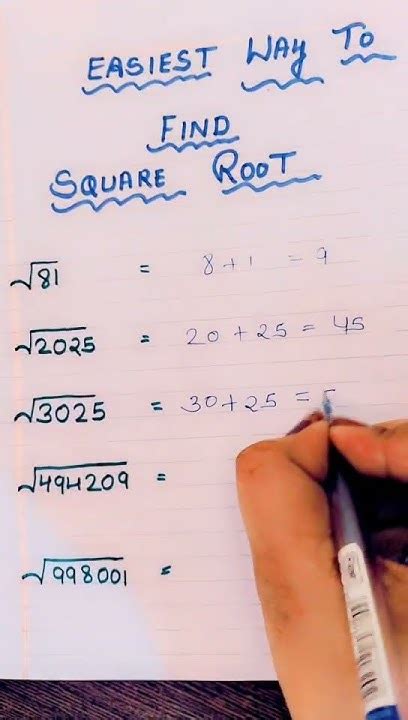 EASIEST WAY TO
FIND
SQUARE ROOT
√81 = 8+1 = 9
√2025 = 20 + 25 = 45
√3025 = 30+25 = 5
√494209 =
√998001 =